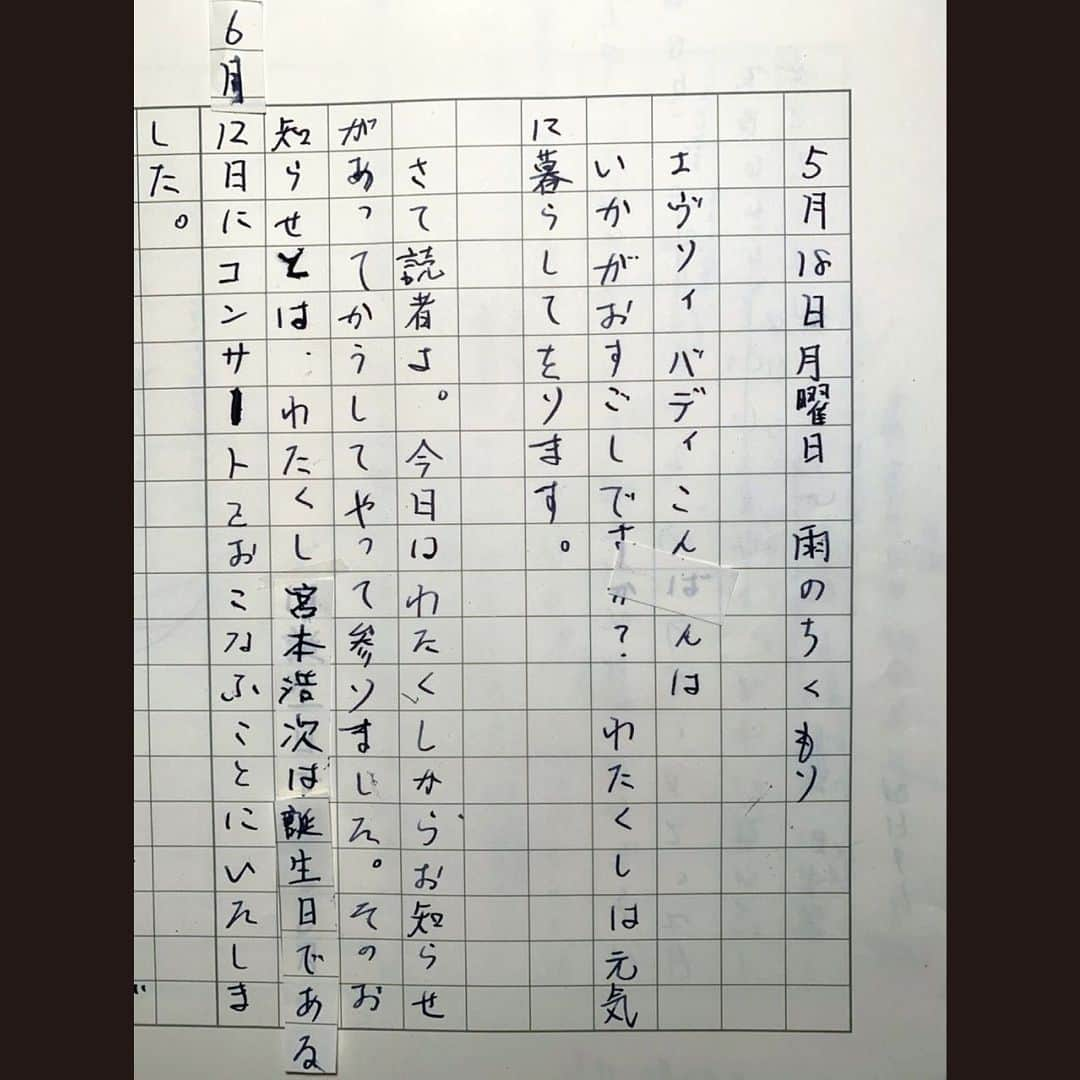 5月18日月曜日 雨のちくもり
エヴリィバディこんばんは
いかがおすごしですか？ わたくしは元気
に暮らしてをります。
さて読者よ。今日はわたくしからお知らせ
があってかうしてやって参りました。そのお
知らせとは・わたくし宮本浩次は誕生日である
6月12日にコンサートをおこなふことにいたしま
した。